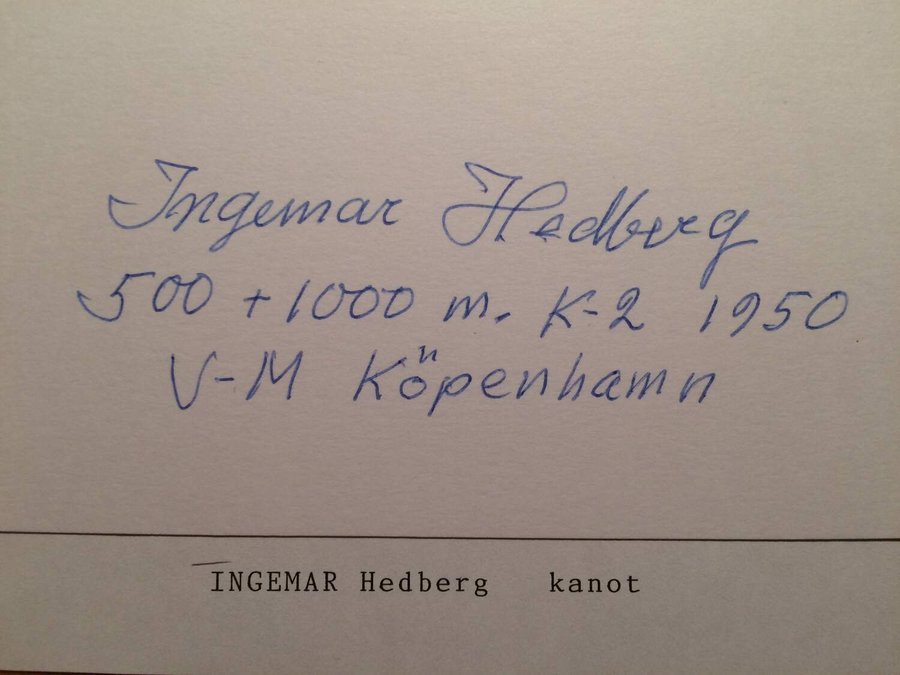 Ingemar Hedberg
500 + 1000 m. K-2 1950
V-M Köpenhamn
INGEMAR Hedberg kanot